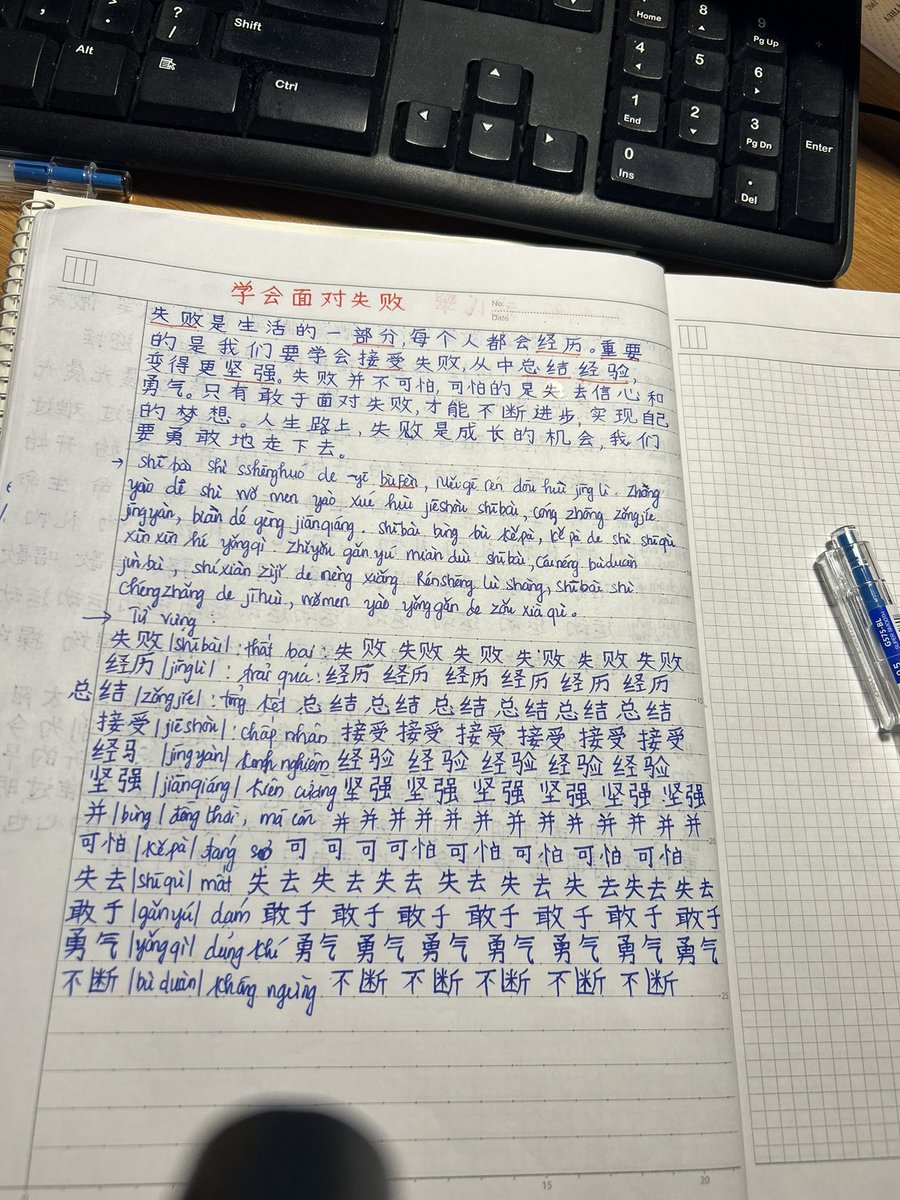 Home
8
9
Pg Up
Shift
? /
> .
4
5
6
Alt
Ctrl
1
End
2
3
Pg Dn
Enter
0
Ins
.
Del
学会面对失败
No.
Date
失败是生活的一部分,每个人都会经历。重要
的是我们要学会接受失败,从中总结经验,
变得更坚强。失败并不可怕,可怕的是失去信心和
勇气。只有敢于面对失败,才能不断进步,实现自己
的梦想。人生路上,失败是成长的机会,我们
要勇敢地走下去。
→ shī bài shì sshēnghuó de yī bùfèn, měi gè rén dōu huì jīng lì. Zhòng
yào de shì wǒ men yào xué huì jiēshòu shībài, cóng zhōng zǒngjié
jīngyàn, biàn dé gèng jiānqiáng. shībài bìng bù kěpà, kě pà de shì shīqù
xìn xīn hé yǒngqì. Zhǐyǒu gǎn yú miàn duì shībài, cáinéng bùduàn
jìn bù, shí xiàn zìjǐ de mèng xiǎng. Rénshēng lù shàng, shībài shì
chéngzhǎng de jīhuì, wǒmen yào yǒnggǎn de zǒu xià qù.
→ Từ vựng:
失败 |shībài|: thất bại: 失败 失败 失败 失败 失败 失败
经历 |jīnglì|: trải qua: 经历 经历 经历 经历 经历 经历
总结 |zǒngjié|: tổng kết 总结 总结 总结 总结 总结 总结
接受 |jiēshòu|: chấp nhận 接受 接受 接受 接受 接受 接受
经马 |jīngyàn| kinh nghiệm 经验 经验 经验 经验 经验
坚强 |jiānqiáng| kiên cường 坚强 坚强 坚强 坚强 坚强 坚强
并 |bìng| đồng thời, mà còn 并 并 并 并 并 并 并 并 并 并 并 并
可怕 |kěpà| đáng sợ 可 可 可 可怕 可怕 可怕 可怕
失去 |shīqù| mất 失去 失去 失去 失去 失去 失去 失去 失去
敢于 |gǎnyú| dám 敢于 敢于 敢于 敢于 敢于 敢于 敢于
勇气 |yǒngqì| dũng khí 勇气 勇气 勇气 勇气 勇气 勇气 勇气
不断 |bù duàn| không ngừng 不断 不断 不断 不断 不断
20
25
15
20